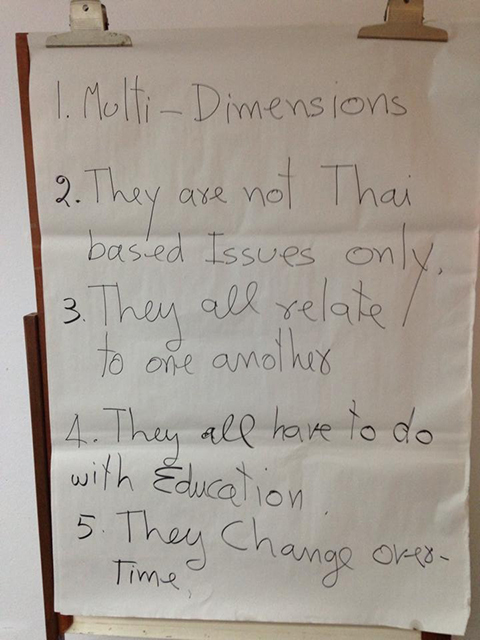 1. Multi-Dimensions
2. They are not Thai
based Issues only,
3. They all relate
to one another
4. They all have to do
with Education.
5. They Change over-
Time,